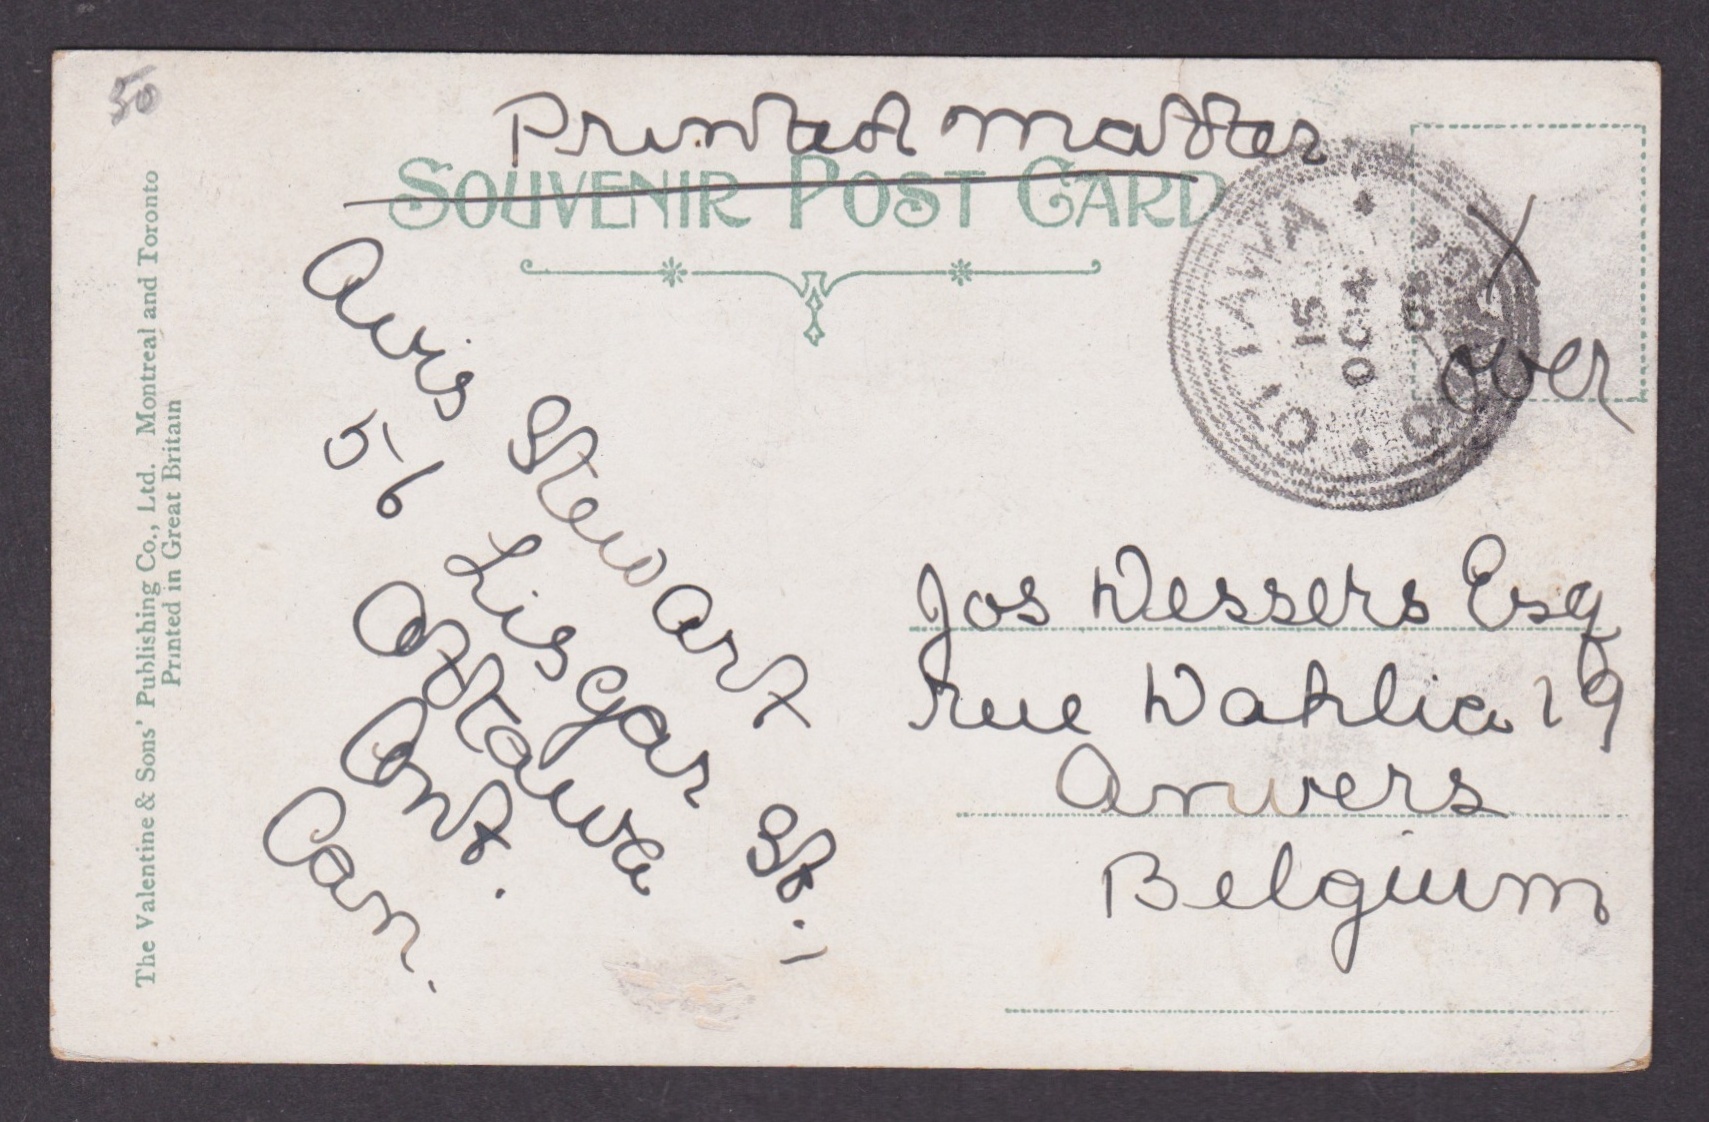 50
Printed Matter
SOUVENIR POST CARD
Avis Stewart
56 Lisgar St.,
Ottawa
Ont.
Can.
OTTAWA
15
OC 14
CANADA
over
Jos Wessers Esq
rue Dahlia 19
Anvers
Belgium
The Valentine & Sons' Publishing Co., Ltd. Montreal and Toronto
Printed in Great Britain